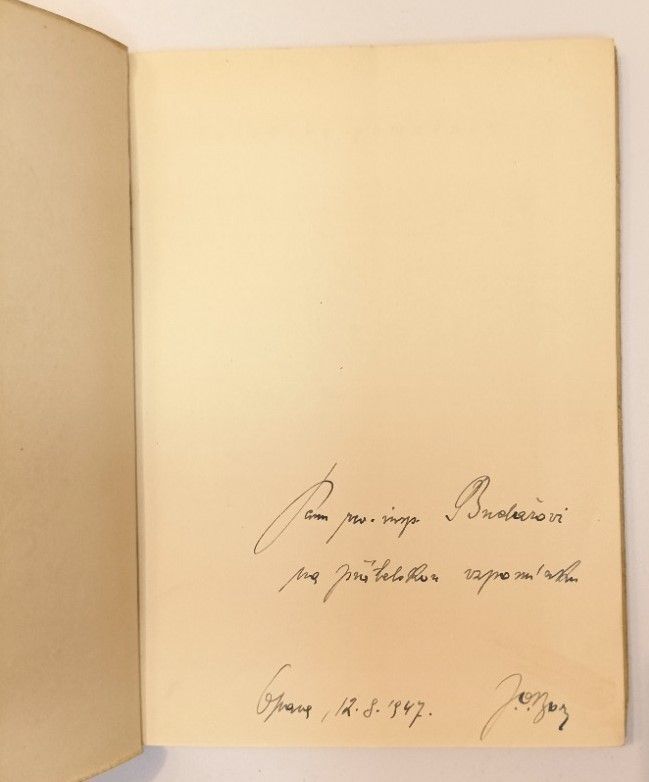 Panu rev. insp. Budařovi
na přátelskou vzpomínku
Opava, 12. 8. 1947.